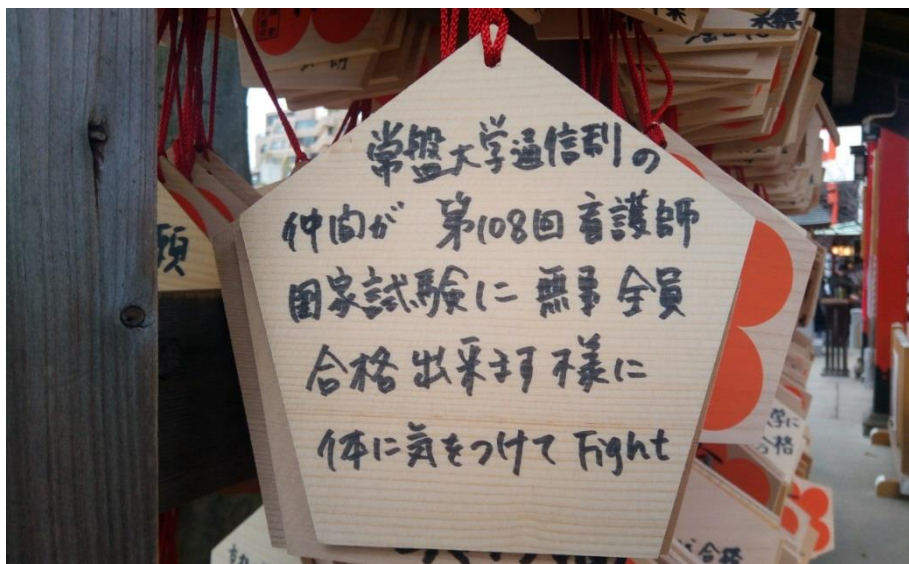 常盤大学通信制の
仲間が 第108回 看護師
国家試験に 無事 全員
合格出来ます様に
体に気をつけて Fight
願
合格
合格